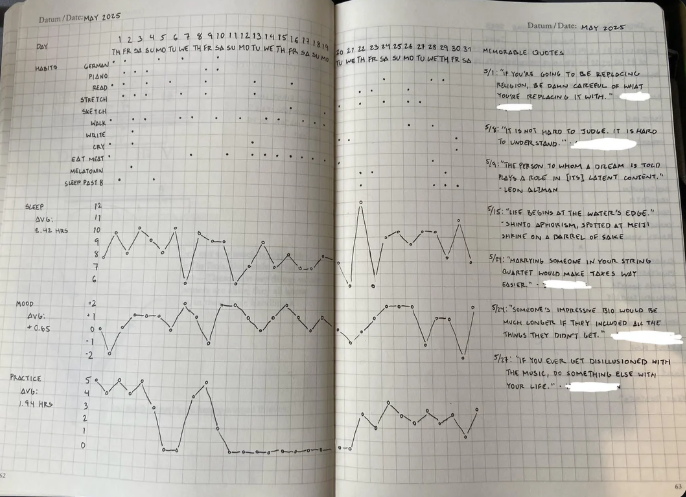 Datum / Date: MAY 2025
DAY 1 2 3 4 5 6 7 8 9 10 11 12 13 14 15 16 17 18 19
TH FR SA SU MO TU WE TH FR SA SU MO TU WE TH FR SA SU MO
HABITS GERMAN
PIANO
READ
STRETCH
SKETCH
WALK
WRITE
CRY
EAT MEAT
MELATONIN
SLEEP PAST 8
SLEEP
AVG:
8.42 HRS
12
11
10
9
8
7
6
MOOD
AVG:
+0.65
+2
+1
0
-1
-2
PRACTICE
AVG:
1.94 HRS
5
4
3
2
1
0
62
Datum / Date: MAY 2025
20 21 22 23 24 25 26 27 28 29 30 31
TU WE TH FR SA SU MO TU WE TH FR SA
MEMORABLE QUOTES
5/1: "IF YOU'RE GOING TO BE REPLACING
RELIGION, BE DAMN CAREFUL OF WHAT
YOU'RE REPLACING IT WITH."
5/8: "IT IS NOT HARD TO JUDGE. IT IS HARD
TO UNDERSTAND."
5/9: "THE PERSON TO WHOM A DREAM IS TOLD
PLAYS A ROLE IN [ITS] LATENT CONTENT."
- LEON ALTMAN
5/15: "LIFE BEGINS AT THE WATER'S EDGE."
- SHINTO APHORISM, SPOTTED AT MEIJI
SHRINE ON A BARREL OF SAKE
"MARRYING SOMEONE IN YOUR STRING
QUARTET WOULD MAKE TAXES WAY
EASIER." -
"SOMEONE'S IMPRESSIVE BIO WOULD BE
MUCH LONGER IF THEY INCLUDED ALL THE
THINGS THEY DIDN'T GET."
5/27: "IF YOU EVER GET DISILLUSIONED WITH
THE MUSIC, DO SOMETHING ELSE WITH
YOUR LIFE." -
63